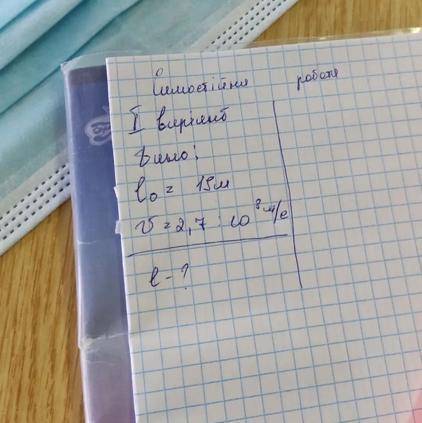 Самостійна робота
I варіант
Дано:
l₀ = 15м
v = 2,7 · 10⁸ м/с
l - ?